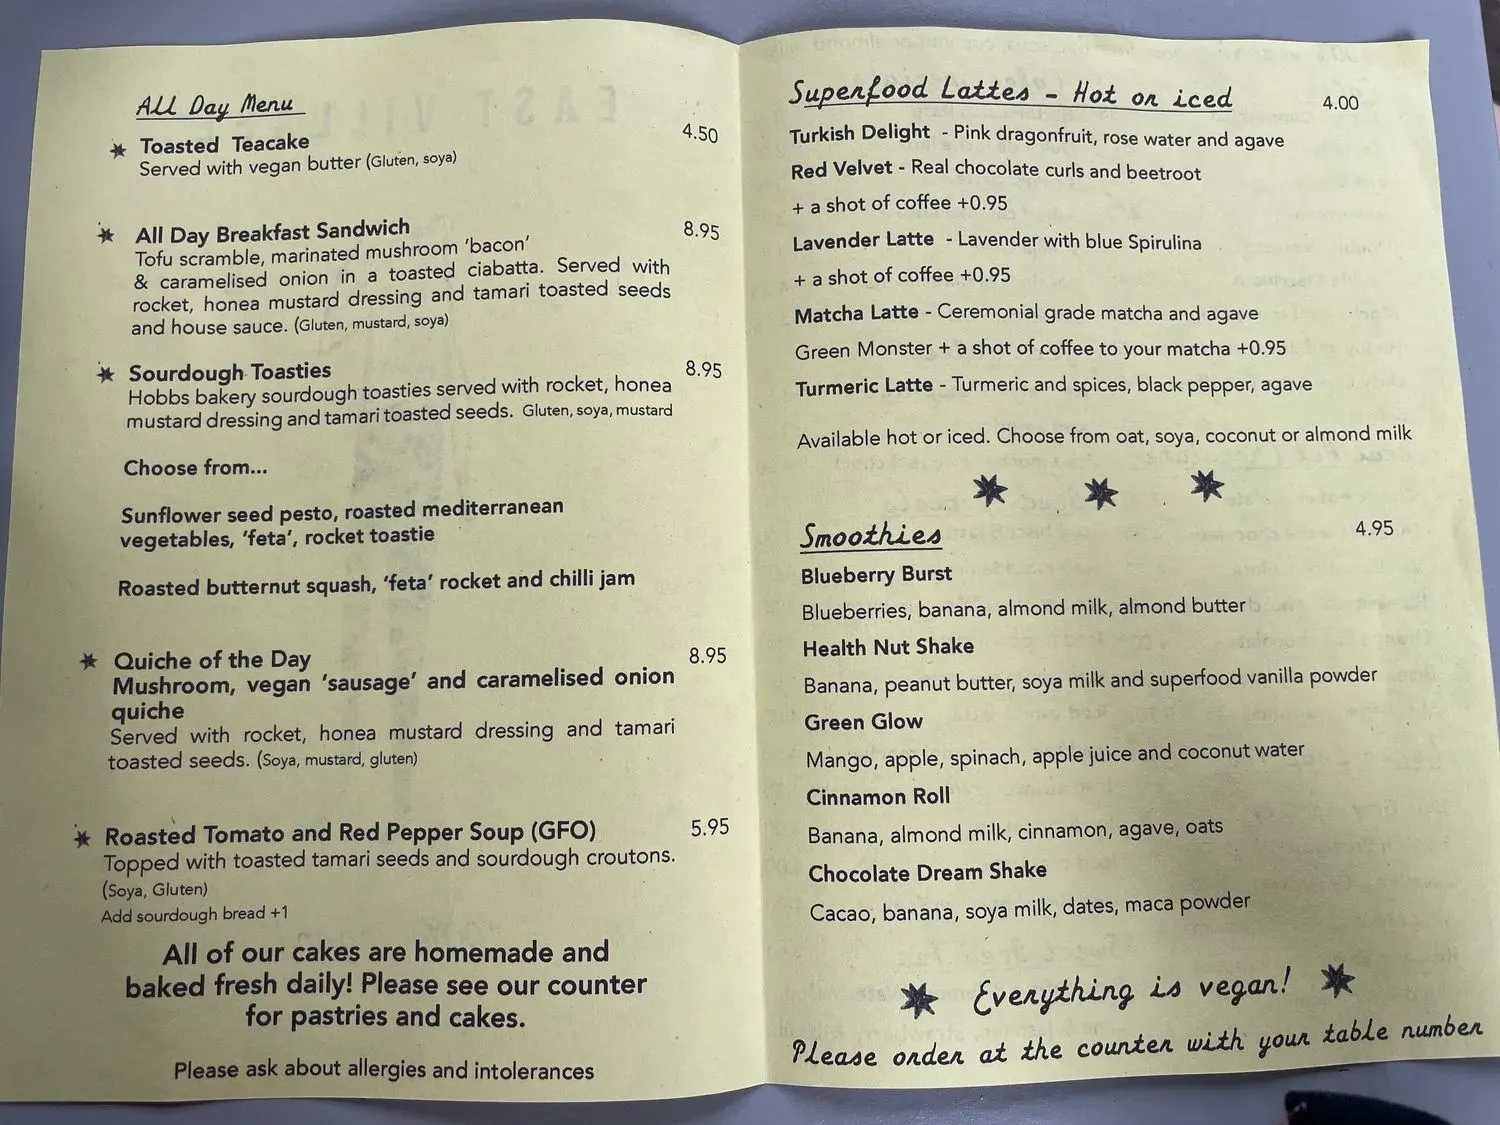 All Day Menu
Toasted Teacake 4.50
Served with vegan butter (Gluten, soya)
All Day Breakfast Sandwich 8.95
Tofu scramble, marinated mushroom 'bacon'
& caramelised onion in a toasted ciabatta. Served with
rocket, honea mustard dressing and tamari toasted seeds
and house sauce. (Gluten, mustard, soya)
Sourdough Toasties 8.95
Hobbs bakery sourdough toasties served with rocket, honea
mustard dressing and tamari toasted seeds. Gluten, soya, mustard
Choose from...
Sunflower seed pesto, roasted mediterranean
vegetables, 'feta', rocket toastie
Roasted butternut squash, 'feta' rocket and chilli jam
Quiche of the Day 8.95
Mushroom, vegan 'sausage' and caramelised onion
quiche
Served with rocket, honea mustard dressing and tamari
toasted seeds. (Soya, mustard, gluten)
Roasted Tomato and Red Pepper Soup (GFO) 5.95
Topped with toasted tamari seeds and sourdough croutons.
(Soya, Gluten)
Add sourdough bread +1
All of our cakes are homemade and
baked fresh daily! Please see our counter
for pastries and cakes.
Please ask about allergies and intolerances
Superfood Lattes - Hot or iced 4.00
Turkish Delight - Pink dragonfruit, rose water and agave
Red Velvet - Real chocolate curls and beetroot
+ a shot of coffee +0.95
Lavender Latte - Lavender with blue Spirulina
+ a shot of coffee +0.95
Matcha Latte - Ceremonial grade matcha and agave
Green Monster + a shot of coffee to your matcha +0.95
Turmeric Latte - Turmeric and spices, black pepper, agave
Available hot or iced. Choose from oat, soya, coconut or almond milk
Smoothies 4.95
Blueberry Burst
Blueberries, banana, almond milk, almond butter
Health Nut Shake
Banana, peanut butter, soya milk and superfood vanilla powder
Green Glow
Mango, apple, spinach, apple juice and coconut water
Cinnamon Roll
Banana, almond milk, cinnamon, agave, oats
Chocolate Dream Shake
Cacao, banana, soya milk, dates, maca powder
Everything is vegan!
Please order at the counter with your table number